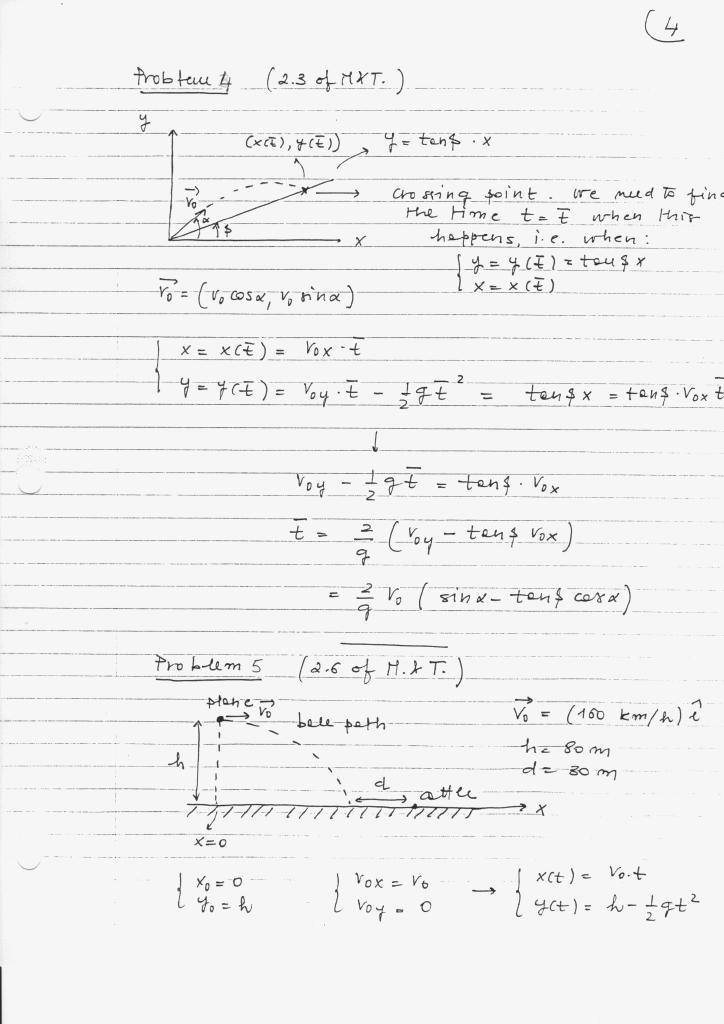 (4
Problem 4 (2.3 of M&T.)
y
(x(t̄), y(t̄)) y = tanβ · x
v⃗₀ α β x
crossing point. we need to find
the time t = t̄ when this
happens, i.e. when:
{ y = y(t̄) = tanβ x
x = x(t̄)
v⃗₀ = (v₀ cosα, v₀ sinα)
{ x = x(t̄) = v₀ₓ · t̄
y = y(t̄) = v₀y · t̄ - ½ g t̄² = tanβ x = tanβ · v₀ₓ t̄
↓
v₀y - ½ g t̄ = tanβ · v₀ₓ
t̄ = 2/g (v₀y - tanβ v₀ₓ)
= 2/g v₀ (sinα - tanβ cosα)
Problem 5 (2.6 of M.&T.)
plane v⃗₀ bale path
v⃗₀ = (160 km/h) î
h = 80 m
d = 30 m
h d cattle
x
x=0
{ x₀ = 0 { v₀ₓ = v₀ → { x(t) = v₀·t
y₀ = h v₀y = 0 y(t) = h - ½ gt²